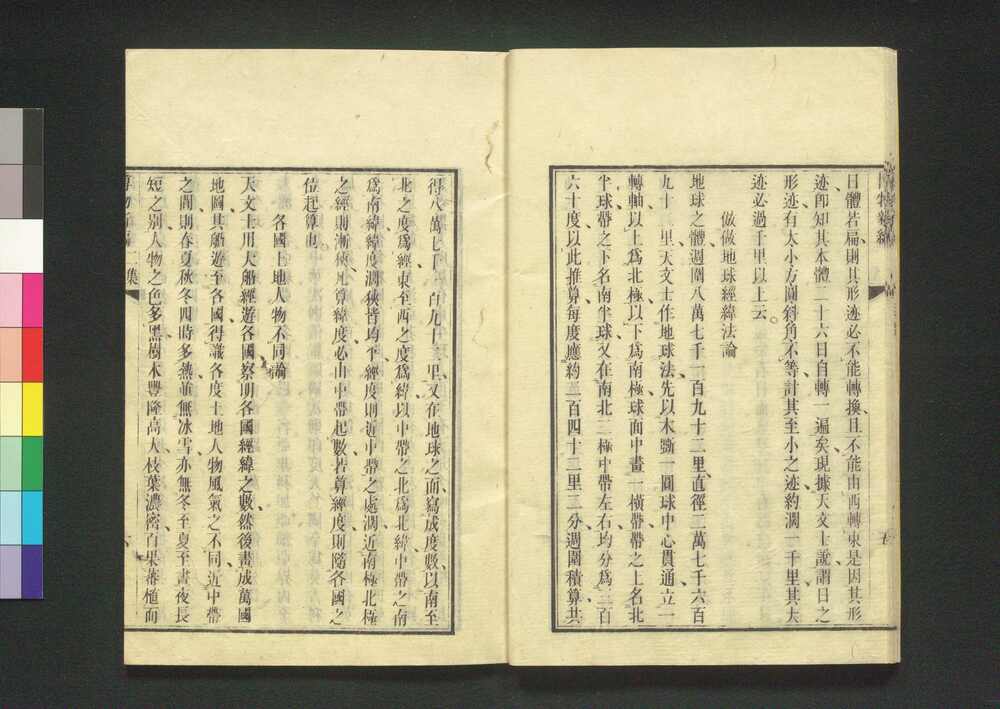 日體若扁則其形迹必不能轉換且不能由西轉東是因其形
迹卽知其本體二十六日自轉一遍矣現據天文士說謂日之
形迹有大小方圓斜角不等計其至小之迹約濶一千里其大
迹必過千里以上云
倣做地球經緯法論
地球之體週圍八萬七千一百九十二里直徑二萬七千六百
九十里天文士作地球法先以木斲一圓球中心貫通立一
轉軸以上爲北極以下爲南極球面中畫一橫帶帶之上名北
半球帶之下名南半球又在南北二極中帶左右均分爲三百
六十度以此推算每度應約二百四十二里三分週圍積算共
得八萬七千一百九十二里又在地球之面寫成度數以南至
北之度爲經東至西之度爲緯以中帶之北爲北緯中帶之南
爲南緯緯度濶狹皆均平經度則近中帶之處濶近南極北極
之經則漸狹凡算緯度必由中帶起數若算經度則隨各國之
位起算也
各國土地人物不同論
天文士用大船經遊各國察明各國經緯之數然後畫成萬國
地圖其船遊至各國得識各度土地人物風氣之不同近中帶
之間則春夏秋冬四時多熱並無冰雪亦無冬至夏至晝夜長
短之別人物之色多黑樹木豐隆高大枝葉濃密百果蕃植而
二集